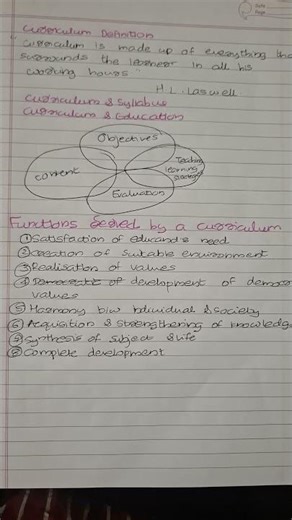 Date
Page
Curriculum Definition
"Curriculum is made up of everything tha
surrounds the learner in all his
working hours"
H L. Laswell
Curriculum & Syllabus
Curriculum & Education
Objectives
Content
learning
Evaluation
Functions Served by a curriculum
① Satisfaction of educand's need
② Creation of suitable environment
③ Realisation of values
④ Democratic of development of democr
values
⑤ Harmony b/w individual & society
⑥ Acquisition & strengthering of knowledg
⑦ Synthesis of subject & life
⑧ Complete development